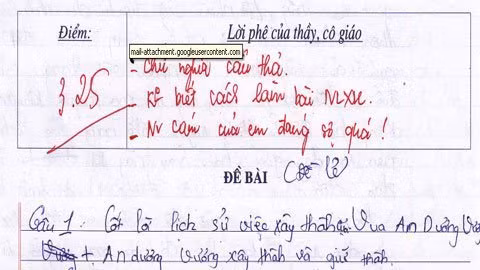 Điểm:
Lời phê của thầy, cô giáo
mail-attachment.googleusercontent.com
3.25
- Chữ nghĩa cẩu thả.
- K biết cách làm bài NLXH.
- Nv cảm của em đáng sợ quá!
ĐỀ BÀI
Câu 1: Cốt lõi lịch sử việc xây thành Vua An Dương Vương
+ An dương vương xây thành và giữ thành.